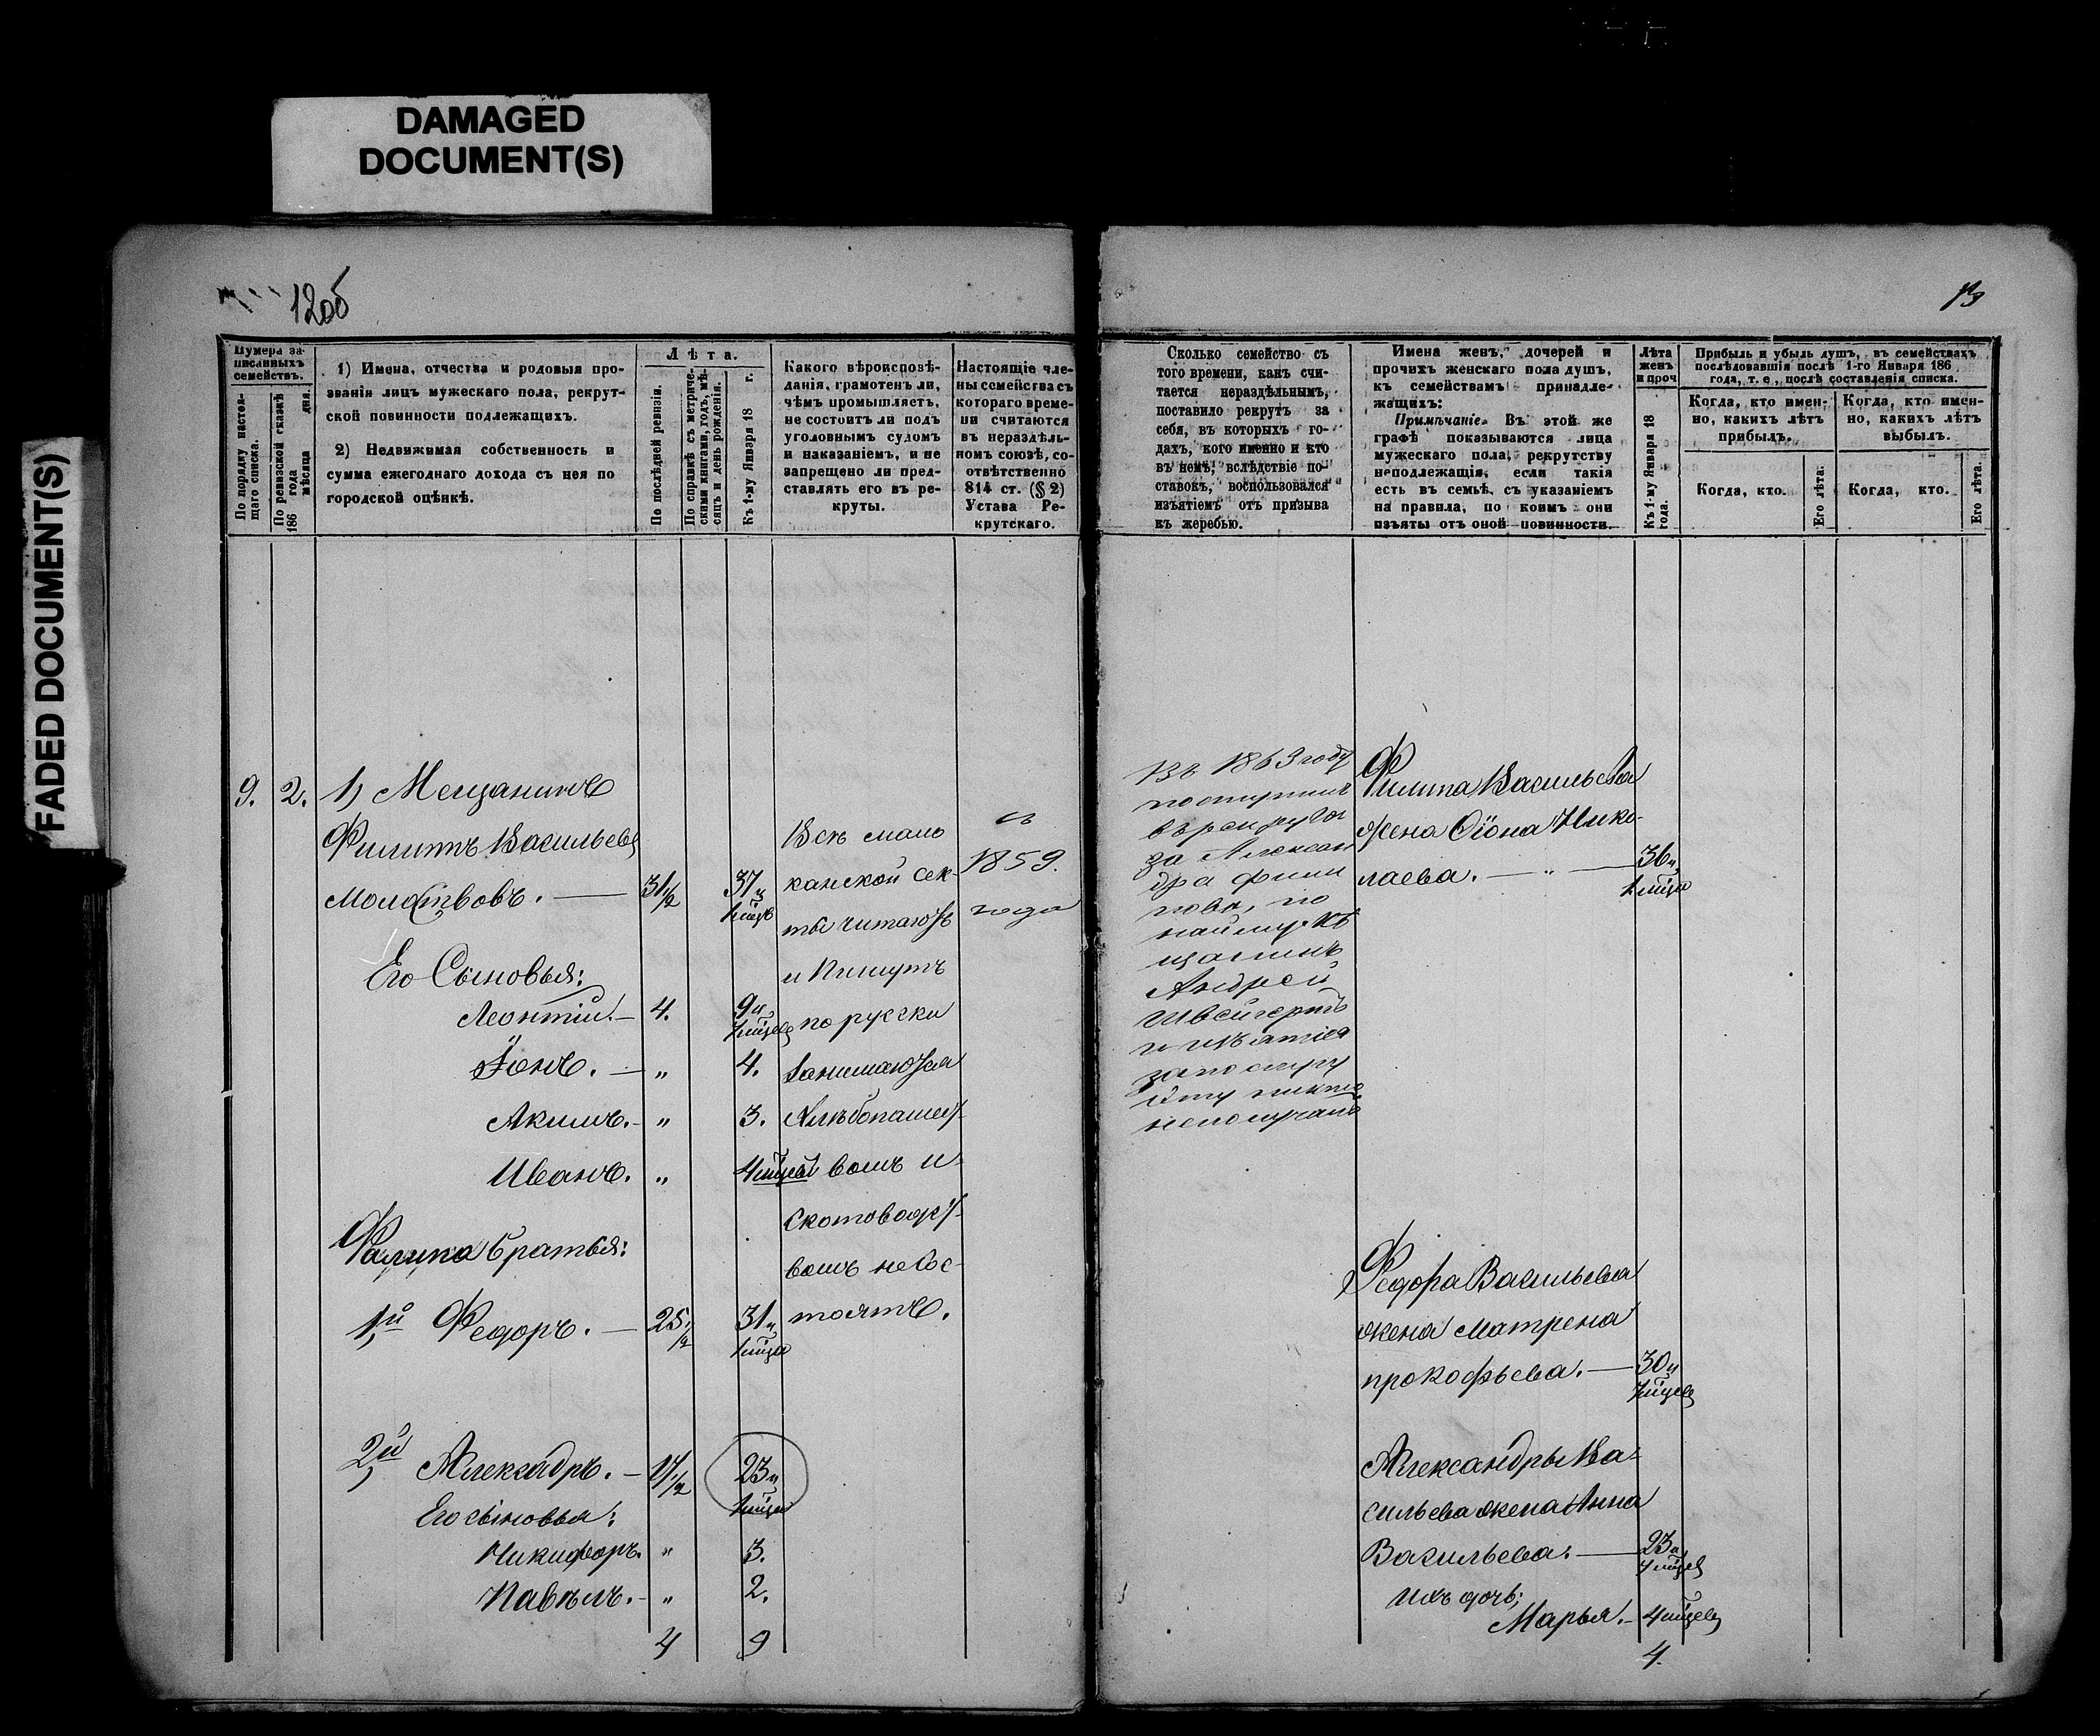 DAMAGED
DOCUMENT(S)
FADED DOCUMENT(S)
12об
13
Нумера за-
писанныхъ
семействъ.
По порядку настоя-
щаго списка.
По ревизской сказкѣ
186 года мѣсяца дня.
1) Имена, отчества и родовыя про-
званія лицъ мужескаго пола, рекрут-
ской повинности подлежащихъ.
2) Недвижимая собственность и
сумма ежегоднаго дохода съ нея по
городской оцѣнкѣ.
Лѣта.
По послѣдней ревизіи.
По справкѣ съ метриче-
скими книгами, годъ, мѣ-
сяцъ и день рожденія.
Къ 1-му Января 18 г.
Какого вѣроисповѣ-
данія, грамотенъ ли,
чѣмъ промышляетъ,
не состоитъ ли подъ
уголовнымъ судомъ
и наказаніемъ, и не
запрещено ли пред-
ставлять его въ ре-
круты.
Настоящіе чле-
ны семейства съ
котораго време-
ни считаются
въ нераздѣль-
номъ союзѣ, со-
отвѣтственно
814 ст. (§ 2)
Устава Ре-
крутскаго.
Сколько семейство съ
того времени, какъ счи-
тается нераздѣльнымъ,
поставило рекрутъ за
себя, въ которыхъ го-
дахъ, кого именно и кто
въ немъ, вслѣдствіе по-
ставокъ, воспользовался
изъятіемъ отъ призыва
къ жеребью.
Имена женъ, дочерей и
прочихъ женскаго пола душъ,
къ семействамъ принадле-
жащихъ:
Примѣчаніе. Въ этой же
графѣ показываются лица
мужескаго пола, рекрутству
неподлежащія, если такія
есть въ семьѣ, съ указаніемъ
на правила, по коимъ они
изъяты отъ оной повинности.
Лѣта
женъ
и проч
Къ 1-му Января 18
года.
Прибыль и убыль душъ, въ семействахъ
послѣдовавшія послѣ 1-го Января 186
года, т. е., послѣ составленія списка.
Когда, кто имен-
но, какихъ лѣтъ
прибылъ.
Когда, кто имен-
но, какихъ лѣтъ
выбылъ.
Когда, кто.
Его лѣта.
Когда, кто.
Его лѣта.
9. 2. 1) Мещанинъ
Филиппъ Васильевъ
31 1/2 37 и
Его Сыновья:
Леонтій. 4. 9 и
Іонъ. „ 4.
Акимъ. „ 3.
Иванъ. „ 4 мѣсяц
Филипа братья:
1й Федоръ. 25 1/2 31 и
2й Александръ. 17 1/2 23 и
Его сыновья:
Никифоръ. „ 3.
Павелъ. „ 2.
4 9
Всѣ моло
канской сек-
ты читаютъ
и пишутъ
по русски
Занимаются
Хлѣбопашест-
вомъ и
скотоводст-
вомъ не сос-
тоятъ.
съ
1859.
года
Въ 1863 году
поступилъ
въ рекруты
за Алексан
дра Фили
пова, по
найму мѣ
щанинъ
Андрей
Швейгертъ
Филипа Васильева
жена Ѳіона Нико-
лаева. „ 36 и
Федора Васильева
жена Матрена
прокофьева. 30 и
Александры Ва-
сильева жена Анна
Васильева. 23 и
ихъ дочь;
Марья. 4 мѣсяц
4.